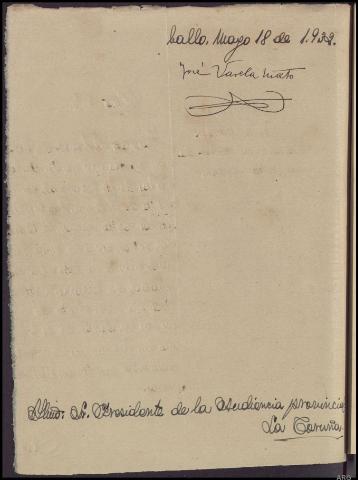 Callo, Mayo 18 de 1.939.
José Varela Mato
Iltmo. Sr. Presidente de la Audiencia provincial
La Coruña.
ARG